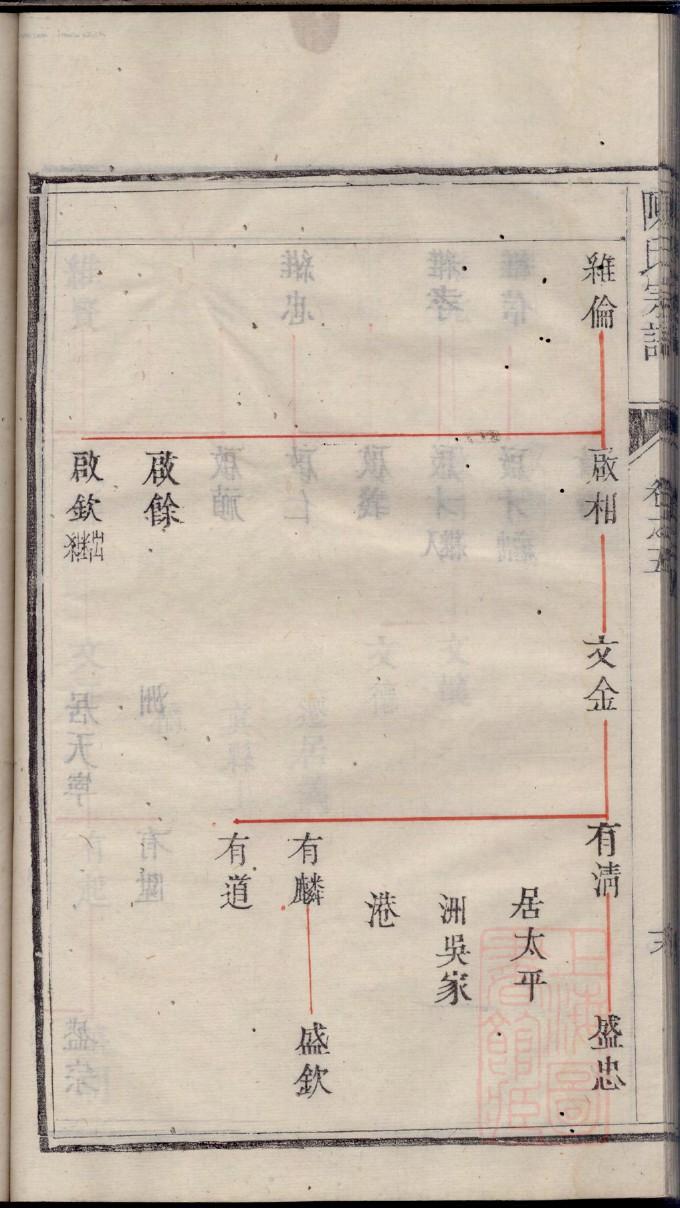 陳氏宗譜
卷之五
維倫
啟相
啟餘
啟欽
出繼
文金
有淸
居太平
洲吳家
港
有麟
有道
盛忠
盛欽